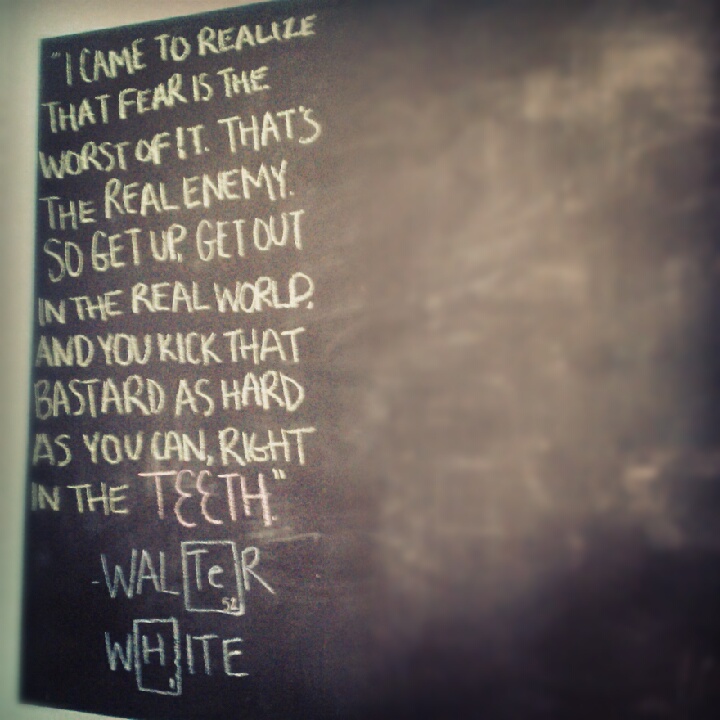 "I CAME TO REALIZE
THAT FEAR IS THE
WORST OF IT. THAT'S
THE REAL ENEMY.
SO GET UP, GET OUT
IN THE REAL WORLD.
AND YOU KICK THAT
BASTARD AS HARD
AS YOU CAN, RIGHT
IN THE TEETH."
-WALTeR
52
WHITE